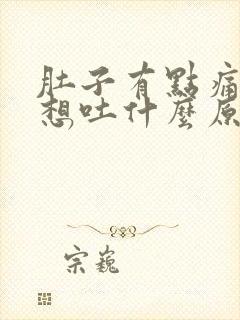 肚子有點痛
想吐什麼原
宗巍